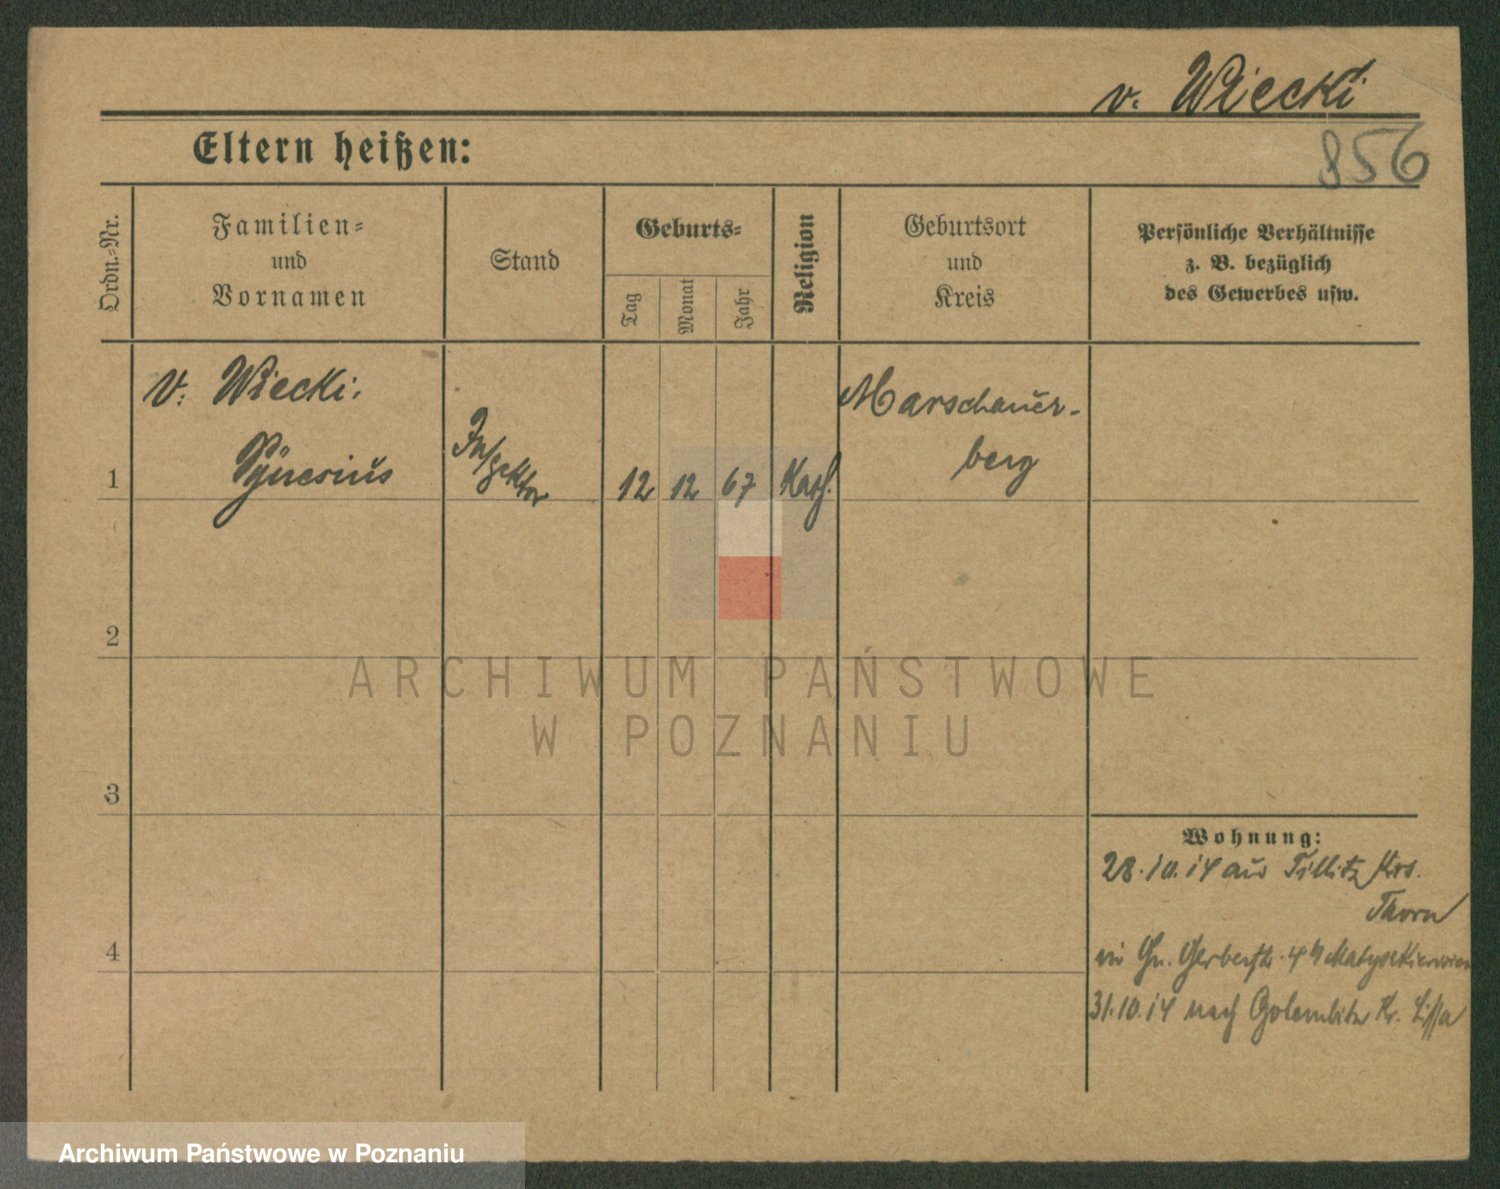 v. Wiecki
856
Eltern heißen:
Ordn.-Nr.
Familien-
und
Vornamen
Stand
Geburts-
Tag
Monat
Jahr
Religion
Geburtsort
und
Kreis
Persönliche Verhältnisse
z. B. bezüglich
des Gewerbes usw.
v. Wiecki.
Inspektor
Marschauer-
berg
1
12
12
67
Kath.
2
ARCHIWUM PAŃSTWOWE
W POZNANIU
3
Wohnung:
28.10.14 aus Tillitz Krs.
Thorn
in Gr. Gerberstr. 4
4
31.10.14 nach Golembitz Kr. Lissa
Archiwum Państwowe w Poznaniu